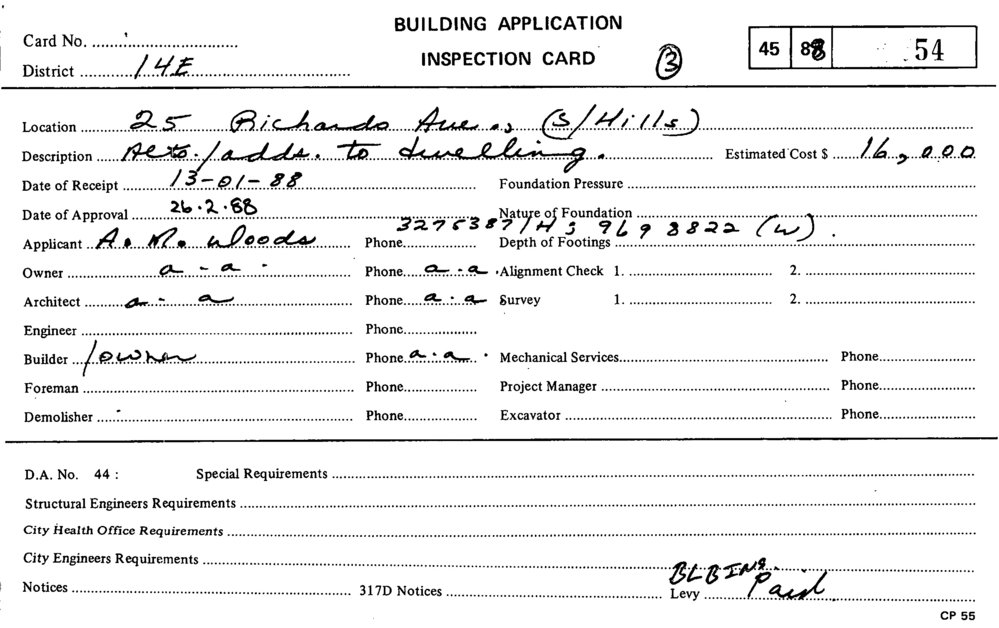 BUILDING APPLICATION
Card No. ...............
INSPECTION CARD
3
45 88 54
District 14E
Location 25 Richards Ave., (S/Hills)
Description Alts./adds. to dwelling. Estimated Cost $ 16,000
Date of Receipt 13-01-88 Foundation Pressure
Date of Approval 26.2.88 Nature of Foundation
3275387/H; 9698822 (W).
Applicant A. M. Woods Phone Depth of Footings
Owner a - a - Phone a - a Alignment Check 1. 2.
Architect a - a Phone a - a Survey 1. 2.
Engineer Phone
Builder /owner Phone a - a Mechanical Services Phone
Foreman Phone Project Manager Phone
Demolisher Phone Excavator Phone
D.A. No. 44 : Special Requirements
Structural Engineers Requirements
City Health Office Requirements
City Engineers Requirements
BLBINS.
Notices 317D Notices Levy Paid
CP 55